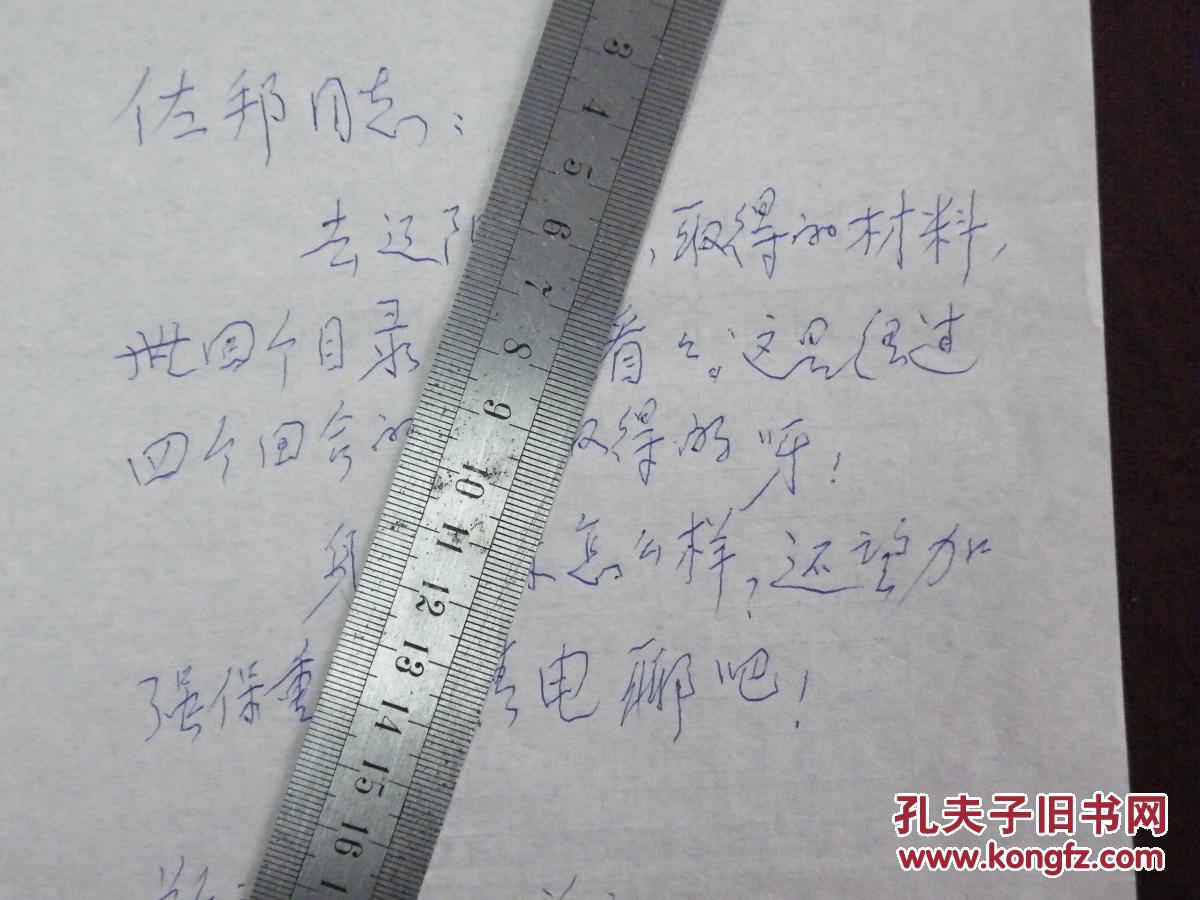 佐邦同志：
去辽阳，取得的材料，
四个目录看々。这是经过
四个回合的取得的呀！
怎么样，还望加
强保重电聊吧！
3
4
5
6
7
8
9
10
11
12
13
14
15
16
1
孔夫子旧书网
www.kongfz.com